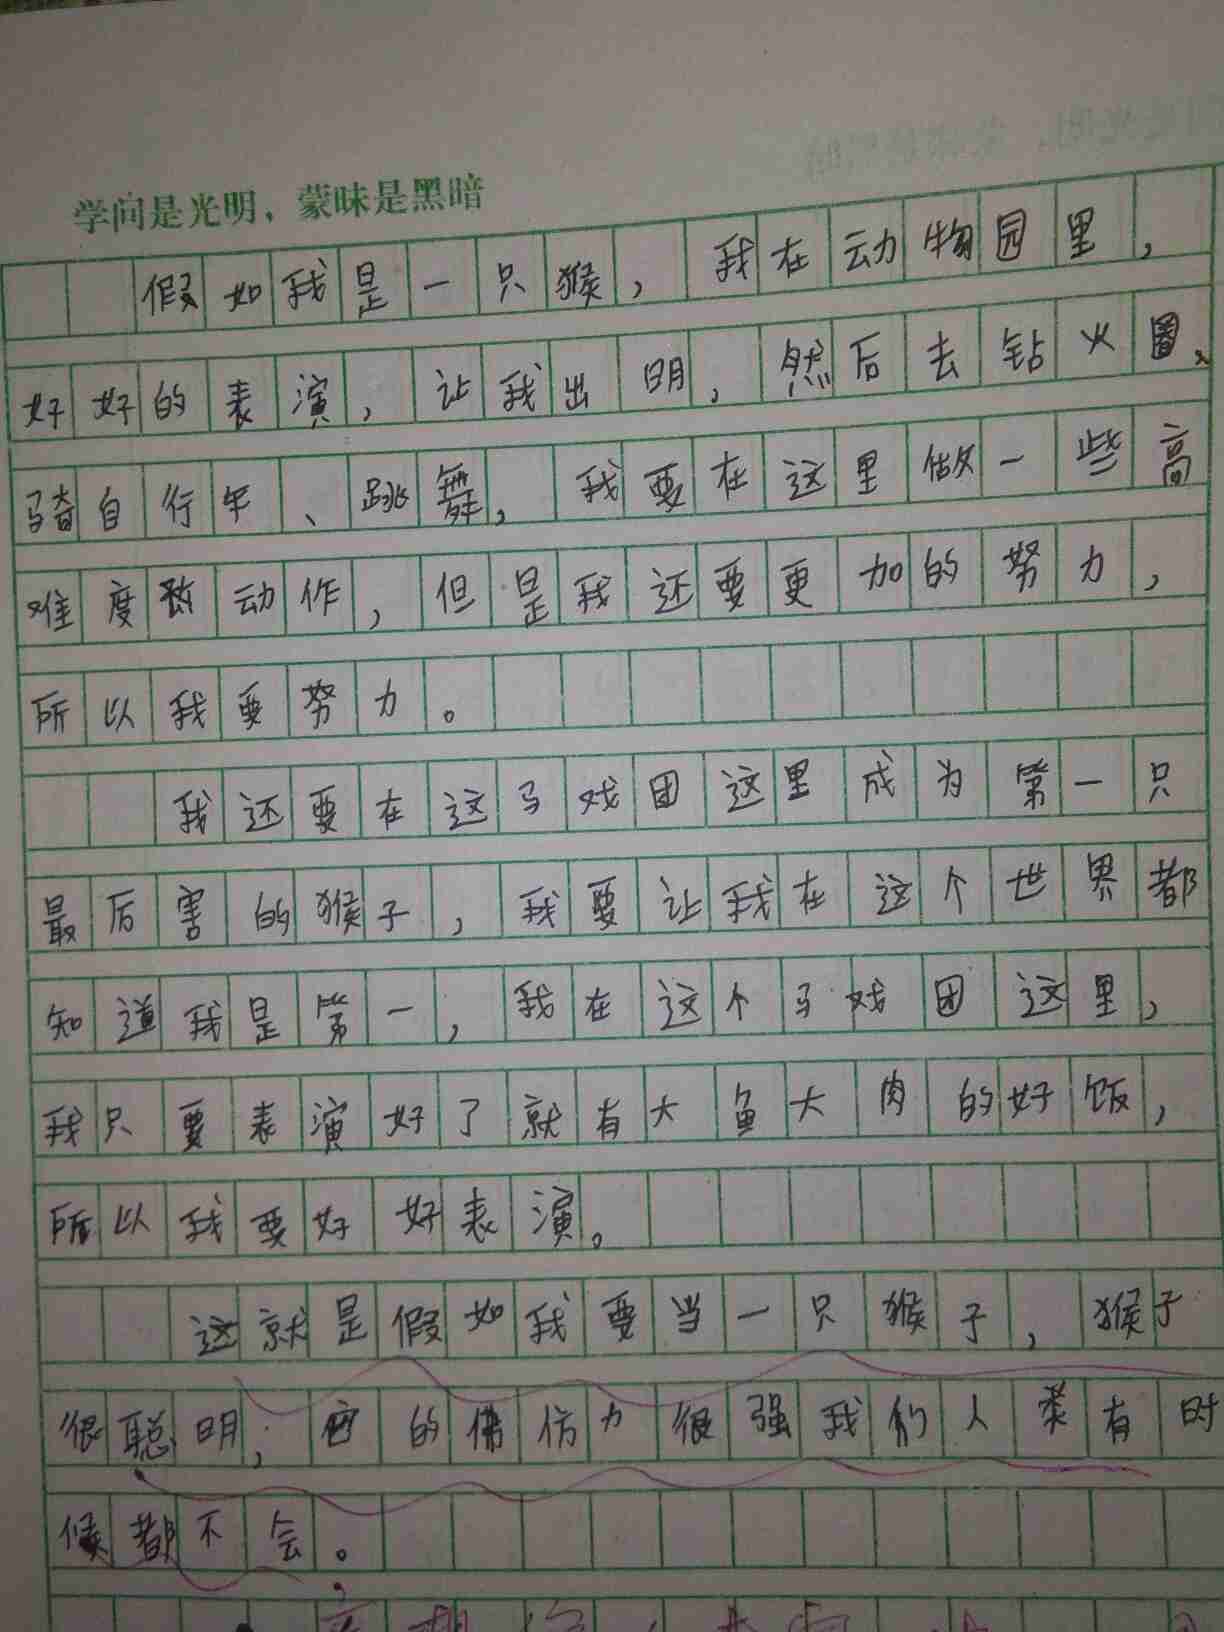 学问是光明，蒙昧是黑暗
假如我是一只猴，我在动物园里，
好好的表演，让我出明，然后去钻火圈、
骑自行车、跳舞，我要在这里做一些高
难度动作，但是我还要更加的努力，
所以我要努力。
我还要在这马戏团这里成为第一只
最历害的猴子，我要让我在这个世界都
知道我是第一，我在这个马戏团这里，
我只要表演好了就有大鱼大肉的好饭，
所以我要好好表演。
这就是假如我要当一只猴子，猴子
很聪明，它的佛仿力很强我们人类有时
候都不会。